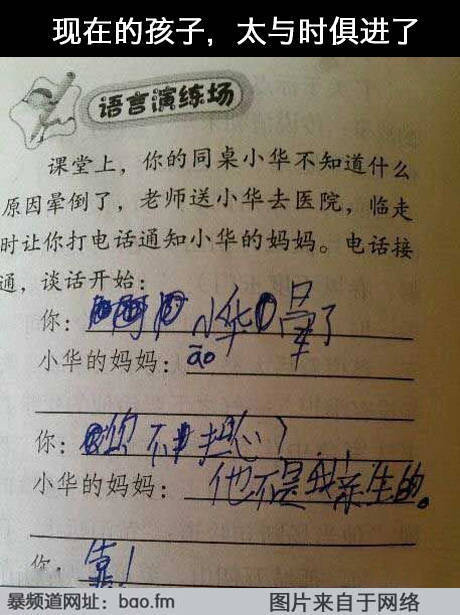 现在的孩子，太与时俱进了
语言演练场
课堂上，你的同桌小华不知道什么
原因晕倒了，老师送小华去医院，临走
时让你打电话通知小华的妈妈。电话接
通，谈话开始：
你：小华晕了
小华的妈妈：ao
你：你不担心？
小华的妈妈：他不是我亲生的。
你：靠！
暴频道网址：bao.fm 图片来自于网络